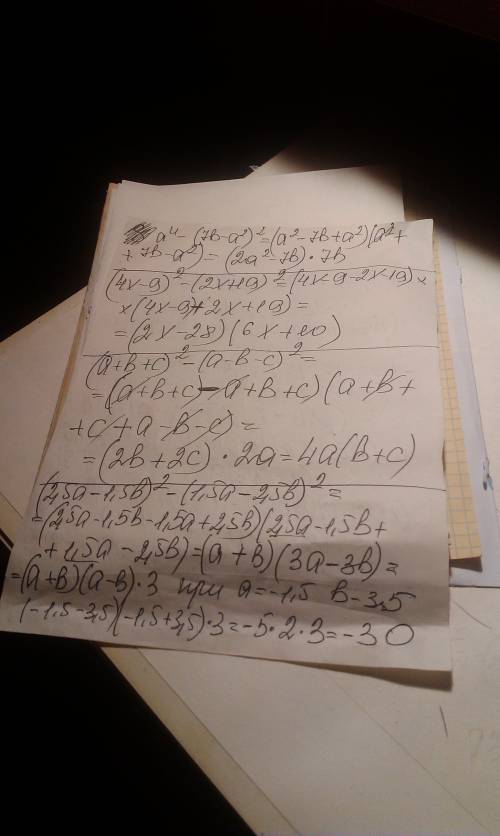 a⁴ - (7b-a²)² = (a² - 7b + a²)(a² +
+ 7b - a²) = (2a² - 7b) · 7b
(4x-9)² - (2x+19)² = (4x-9-2x-19) ×
× (4x-9+2x+19) =
= (2x-28)(6x+10)
(a+b+c)² - (a-b-c)² =
= (a+b+c - a+b+c)(a+b+
+c+a-b-c) =
= (2b+2c) · 2a = 4a(b+c)
(2,5a-1,5b)² - (1,5a-2,5b)² =
= (2,5a-1,5b-1,5a+2,5b)(2,5a-1,5b+
+ 1,5a - 2,5b) = (a+b)(3a-3b) =
= (a+b)(a-b)·3 при a=-1,5 b-3,5
(-1,5-3,5)(-1,5+3,5)·3=-5·2·3=-30